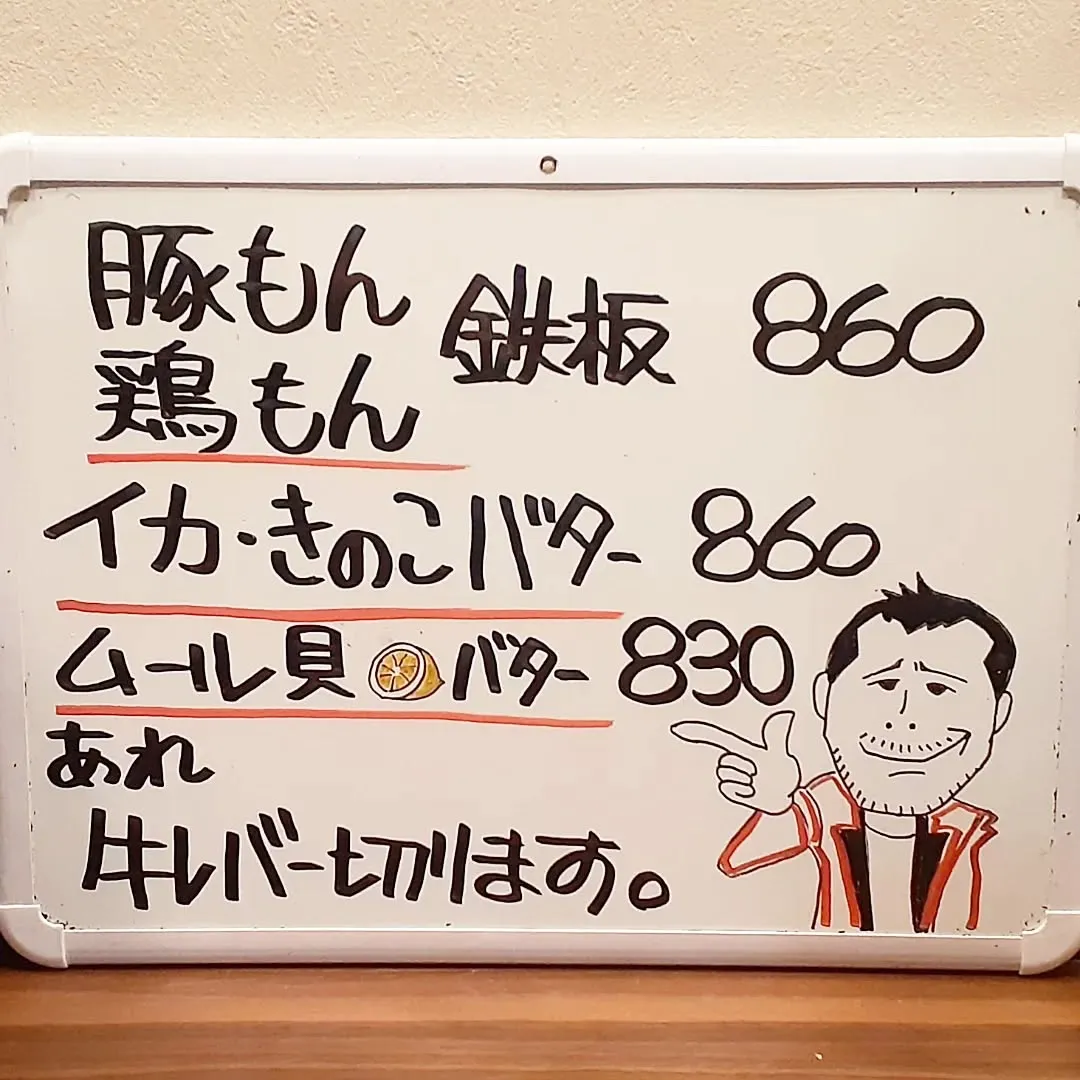 豚もん
鶏もん
鉄板 860
イカ・きのこバター 860
ムール貝バター 830
あれ
牛レバー切ります。